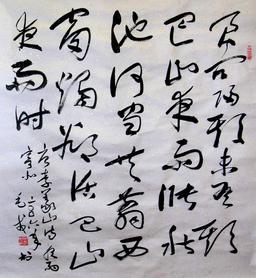 君问归期未有期
巴山夜雨涨秋
池何当共翦西
窗燭却话巴山
夜雨时
唐李商隐诗夜雨
寄北 二〇〇六年